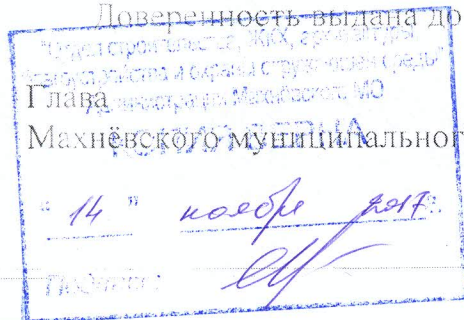 Доверенность выдана до
"Отдел строительства, ЖКХ, архитектуры
благоустройства и охраны окружающей среды"
Администрации Махнёвского МО
Глава
Махнёвского муниципальног
" 14 " ноября 2017г.
Подпись: